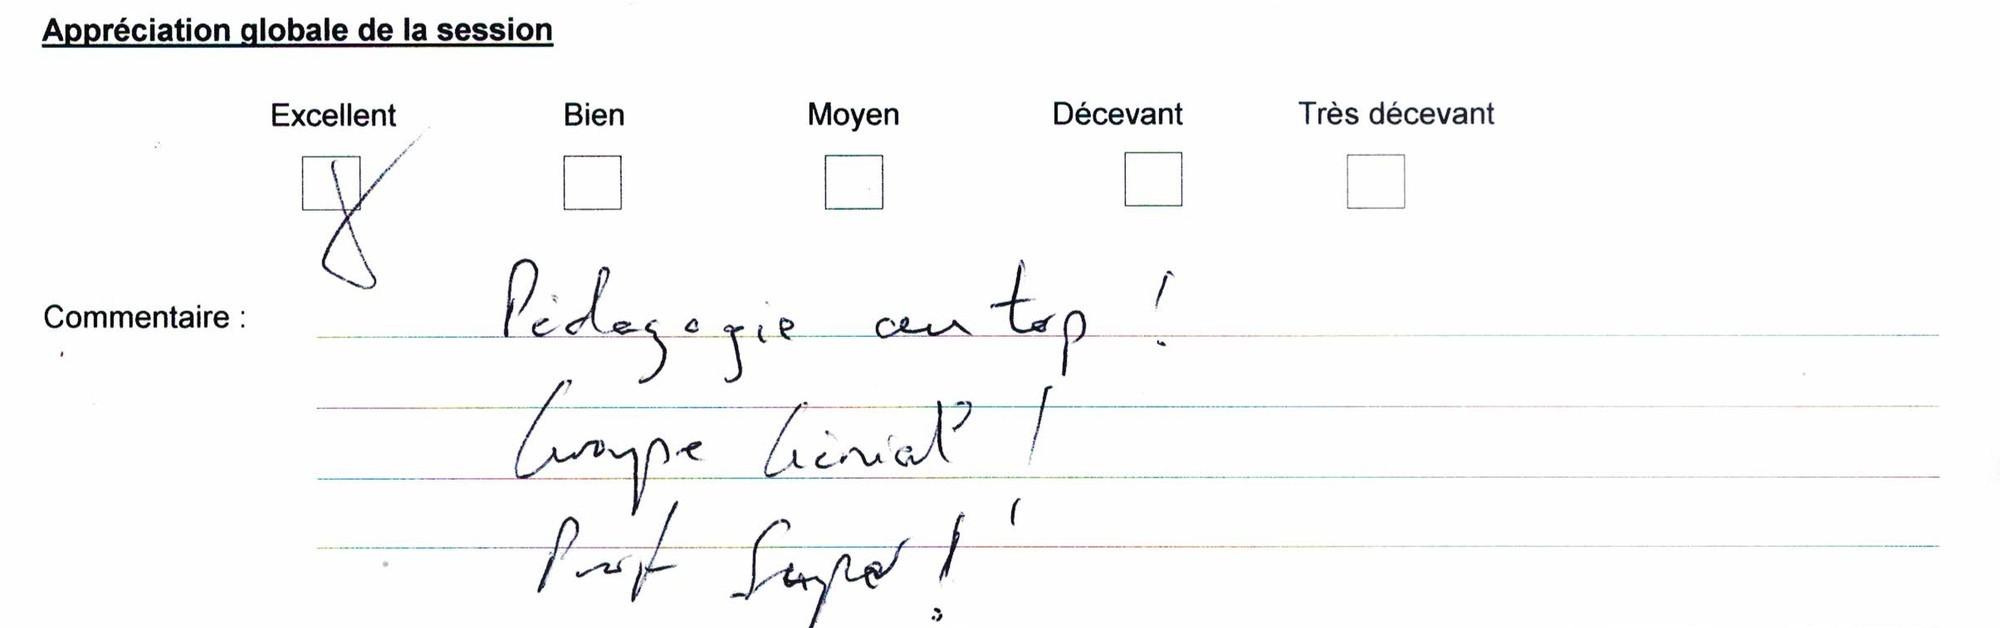 Appréciation globale de la session
Excellent Bien Moyen Décevant Très décevant
Commentaire : Pédagogie au top !
Groupe Génial !
Prof Super !